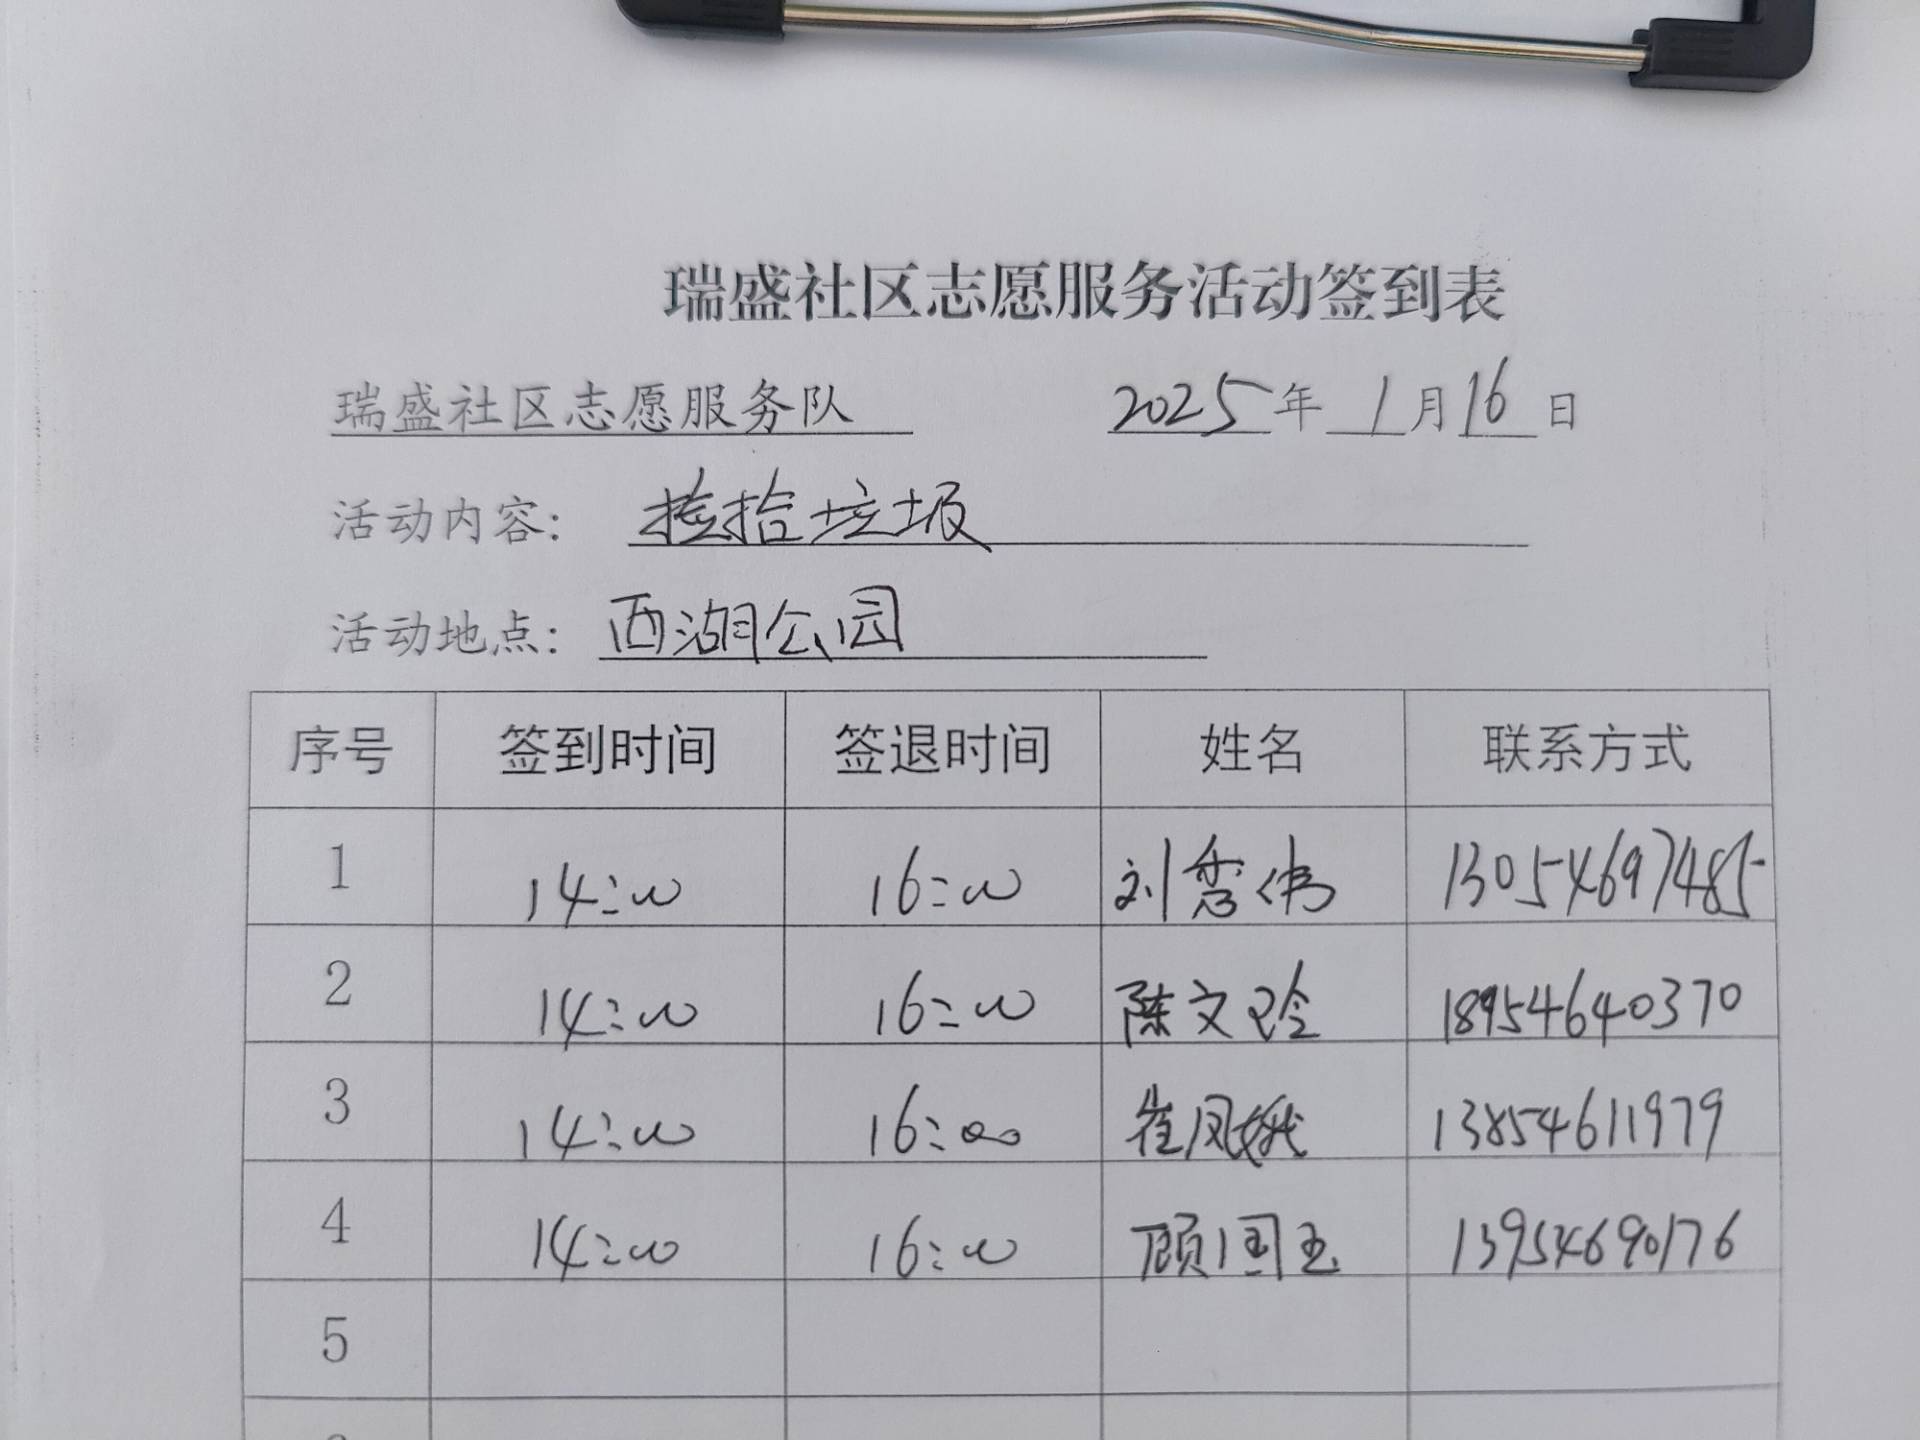 瑞盛社区志愿服务活动签到表
瑞盛社区志愿服务队 2025年1月16日
活动内容: 捡拾垃圾
活动地点: 西湖公园
序号 签到时间 签退时间 姓名 联系方式
1 14:00 16:00 刘秀伟 13054697485
2 14:00 16:00 陈文玲 18954640370
3 14:00 16:00 崔凤娥 13854611979
4 14:00 16:00 顾国玉 13954690176
5